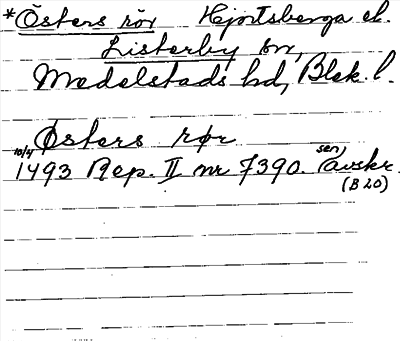 *Östers rör Hjortsberga el.
Listerby sn,
Medelstads hd, Blek. l.
Østers rør
10/4 1493 Rep. II nr 7390. sen. avskr.
(B 20)